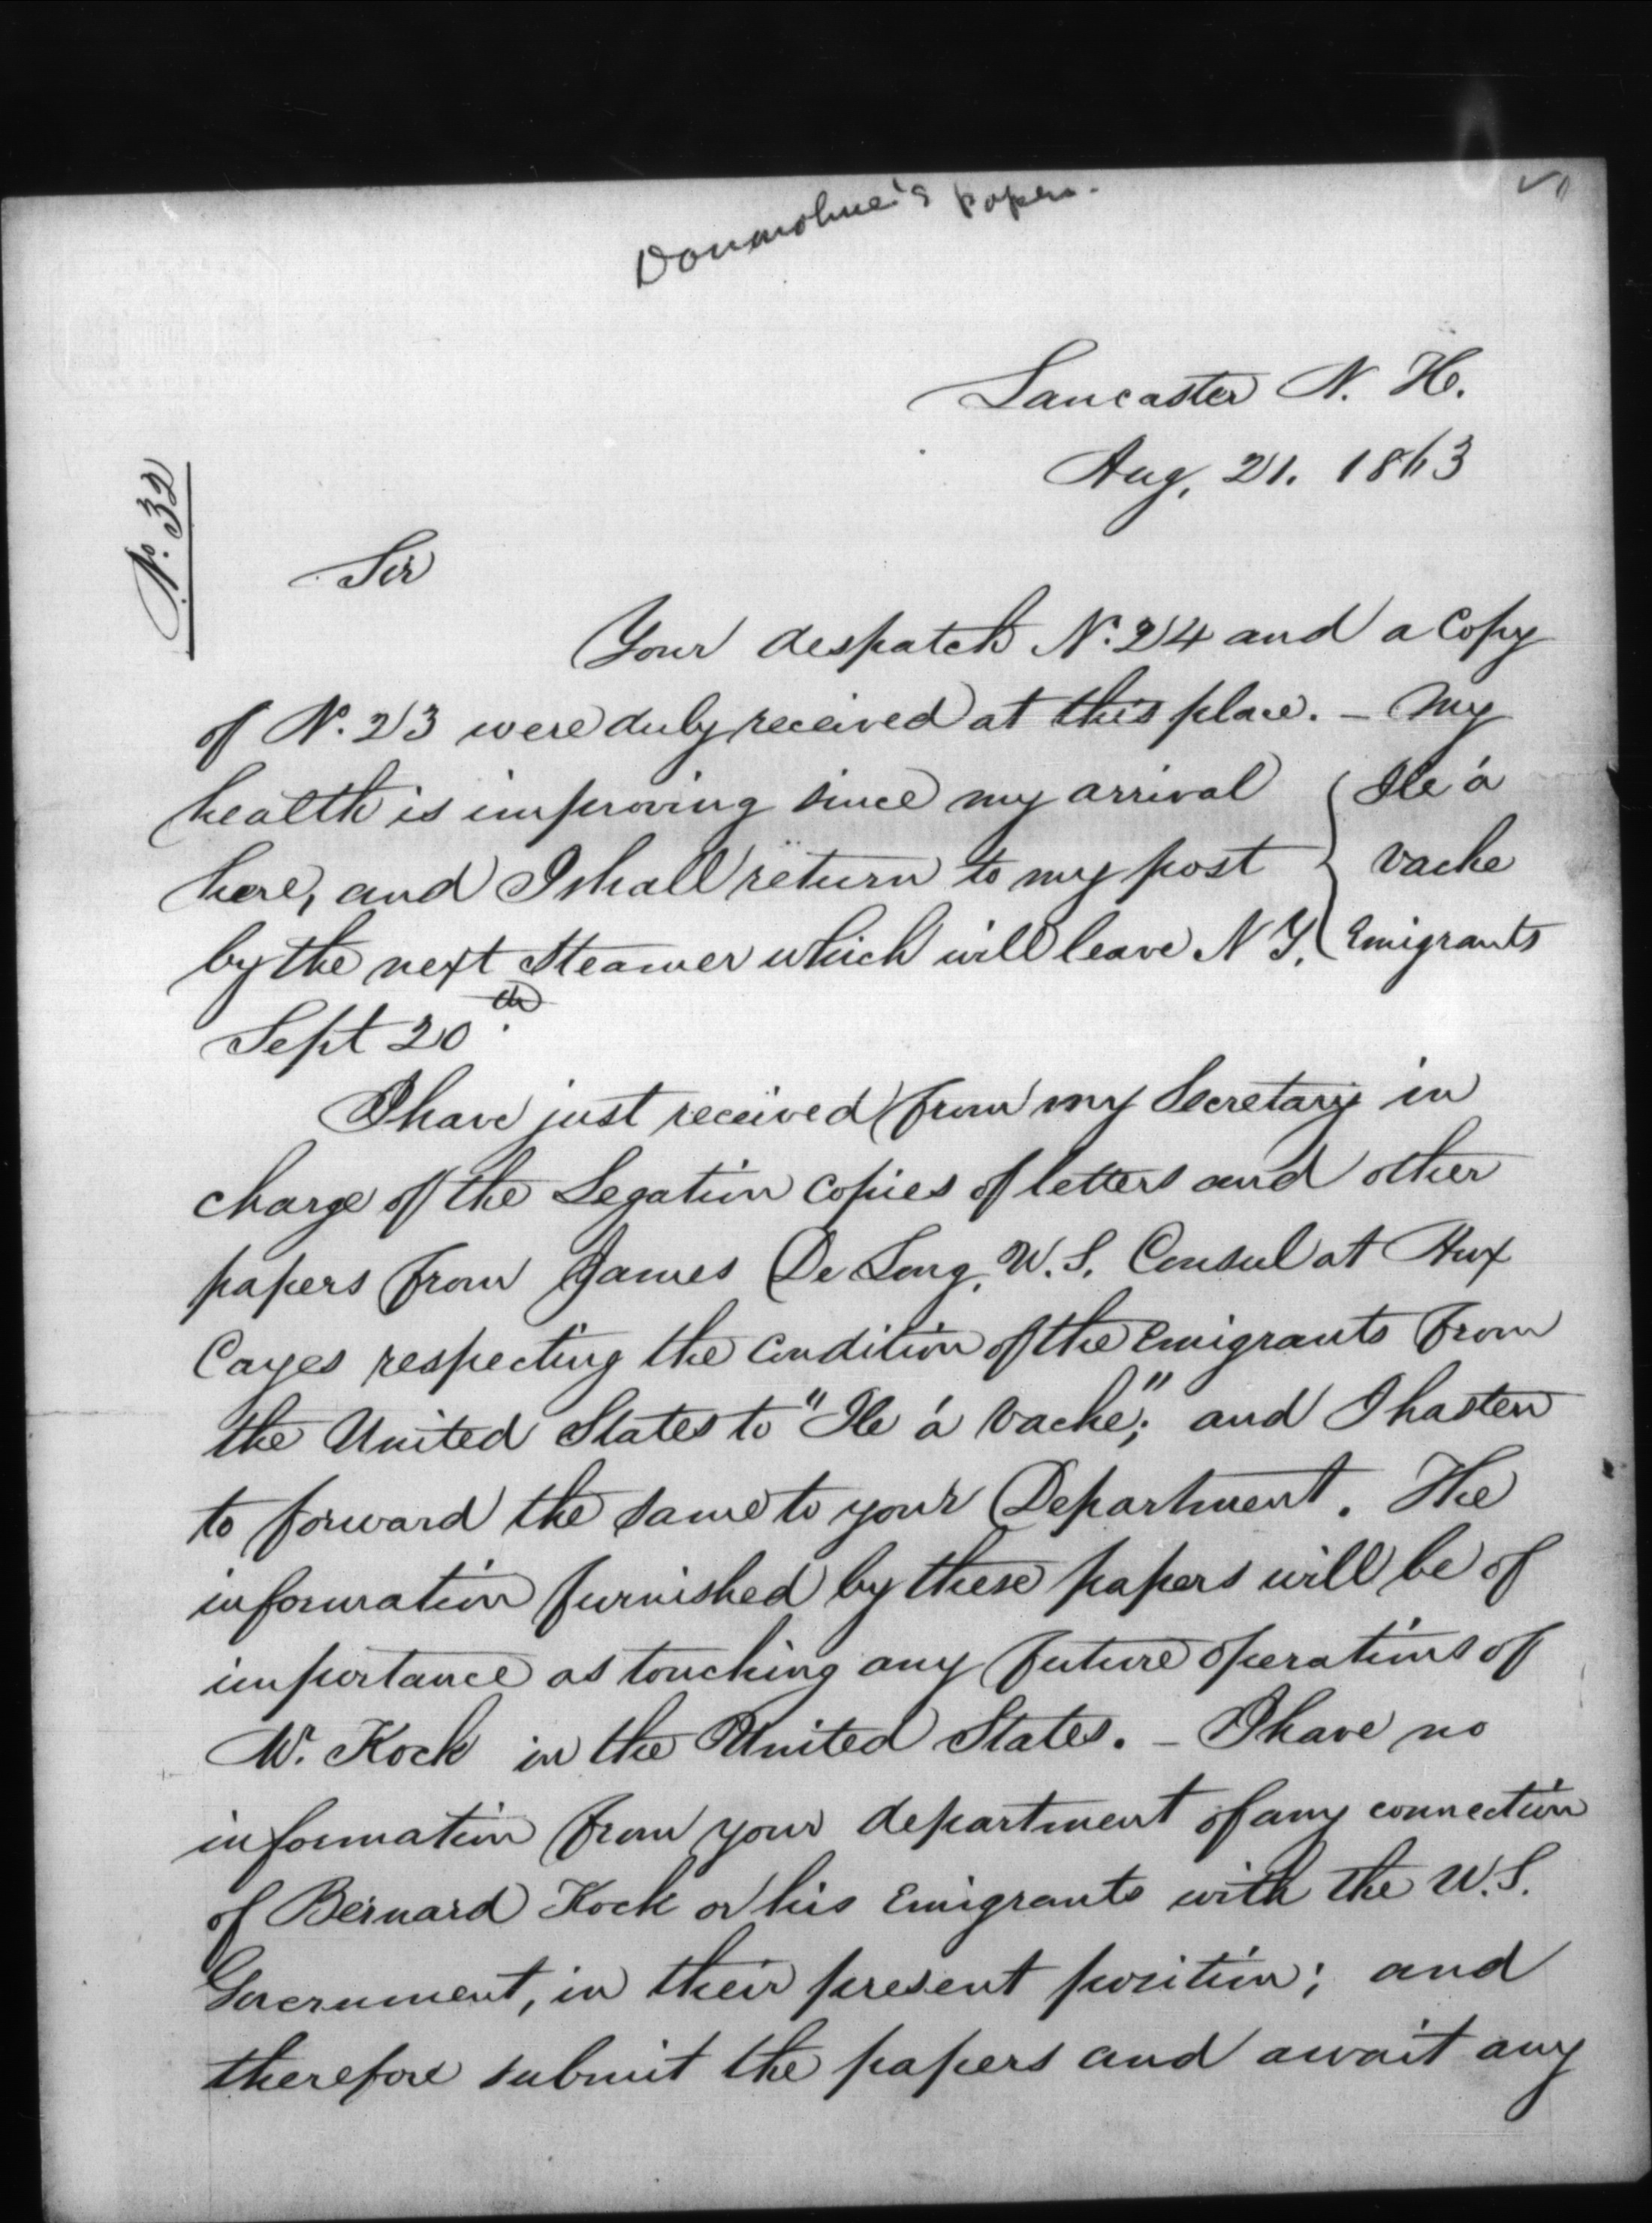 papers.
Lancaster N. H.
Aug. 21. 1863
No. 32
Sir
Your despatch No. 24 and a Copy
of No. 23 were duly received at this place. - My
health is improving since my arrival
here, and I shall return to my post
by the next Steamer which will leave N Y.
Sept 20th.
Ile á
Vache
Emigrants
I have just received from my Secretary in
charge of the Legation Copies of letters and other
papers from James De Long, U. S. Consul at Aux
Cayes respecting the Condition of the Emigrants from
the United States to "Ile á Vache;" and I hasten
to forward the same to your Department. The
information furnished by these papers will be of
importance as touching any future operations of
Mr. Kock in the United States. - I have no
information from your department of any connection
of Bernard Kock or his Emigrants with the U. S.
Government, in their present position; and
therefore submit the papers and await any